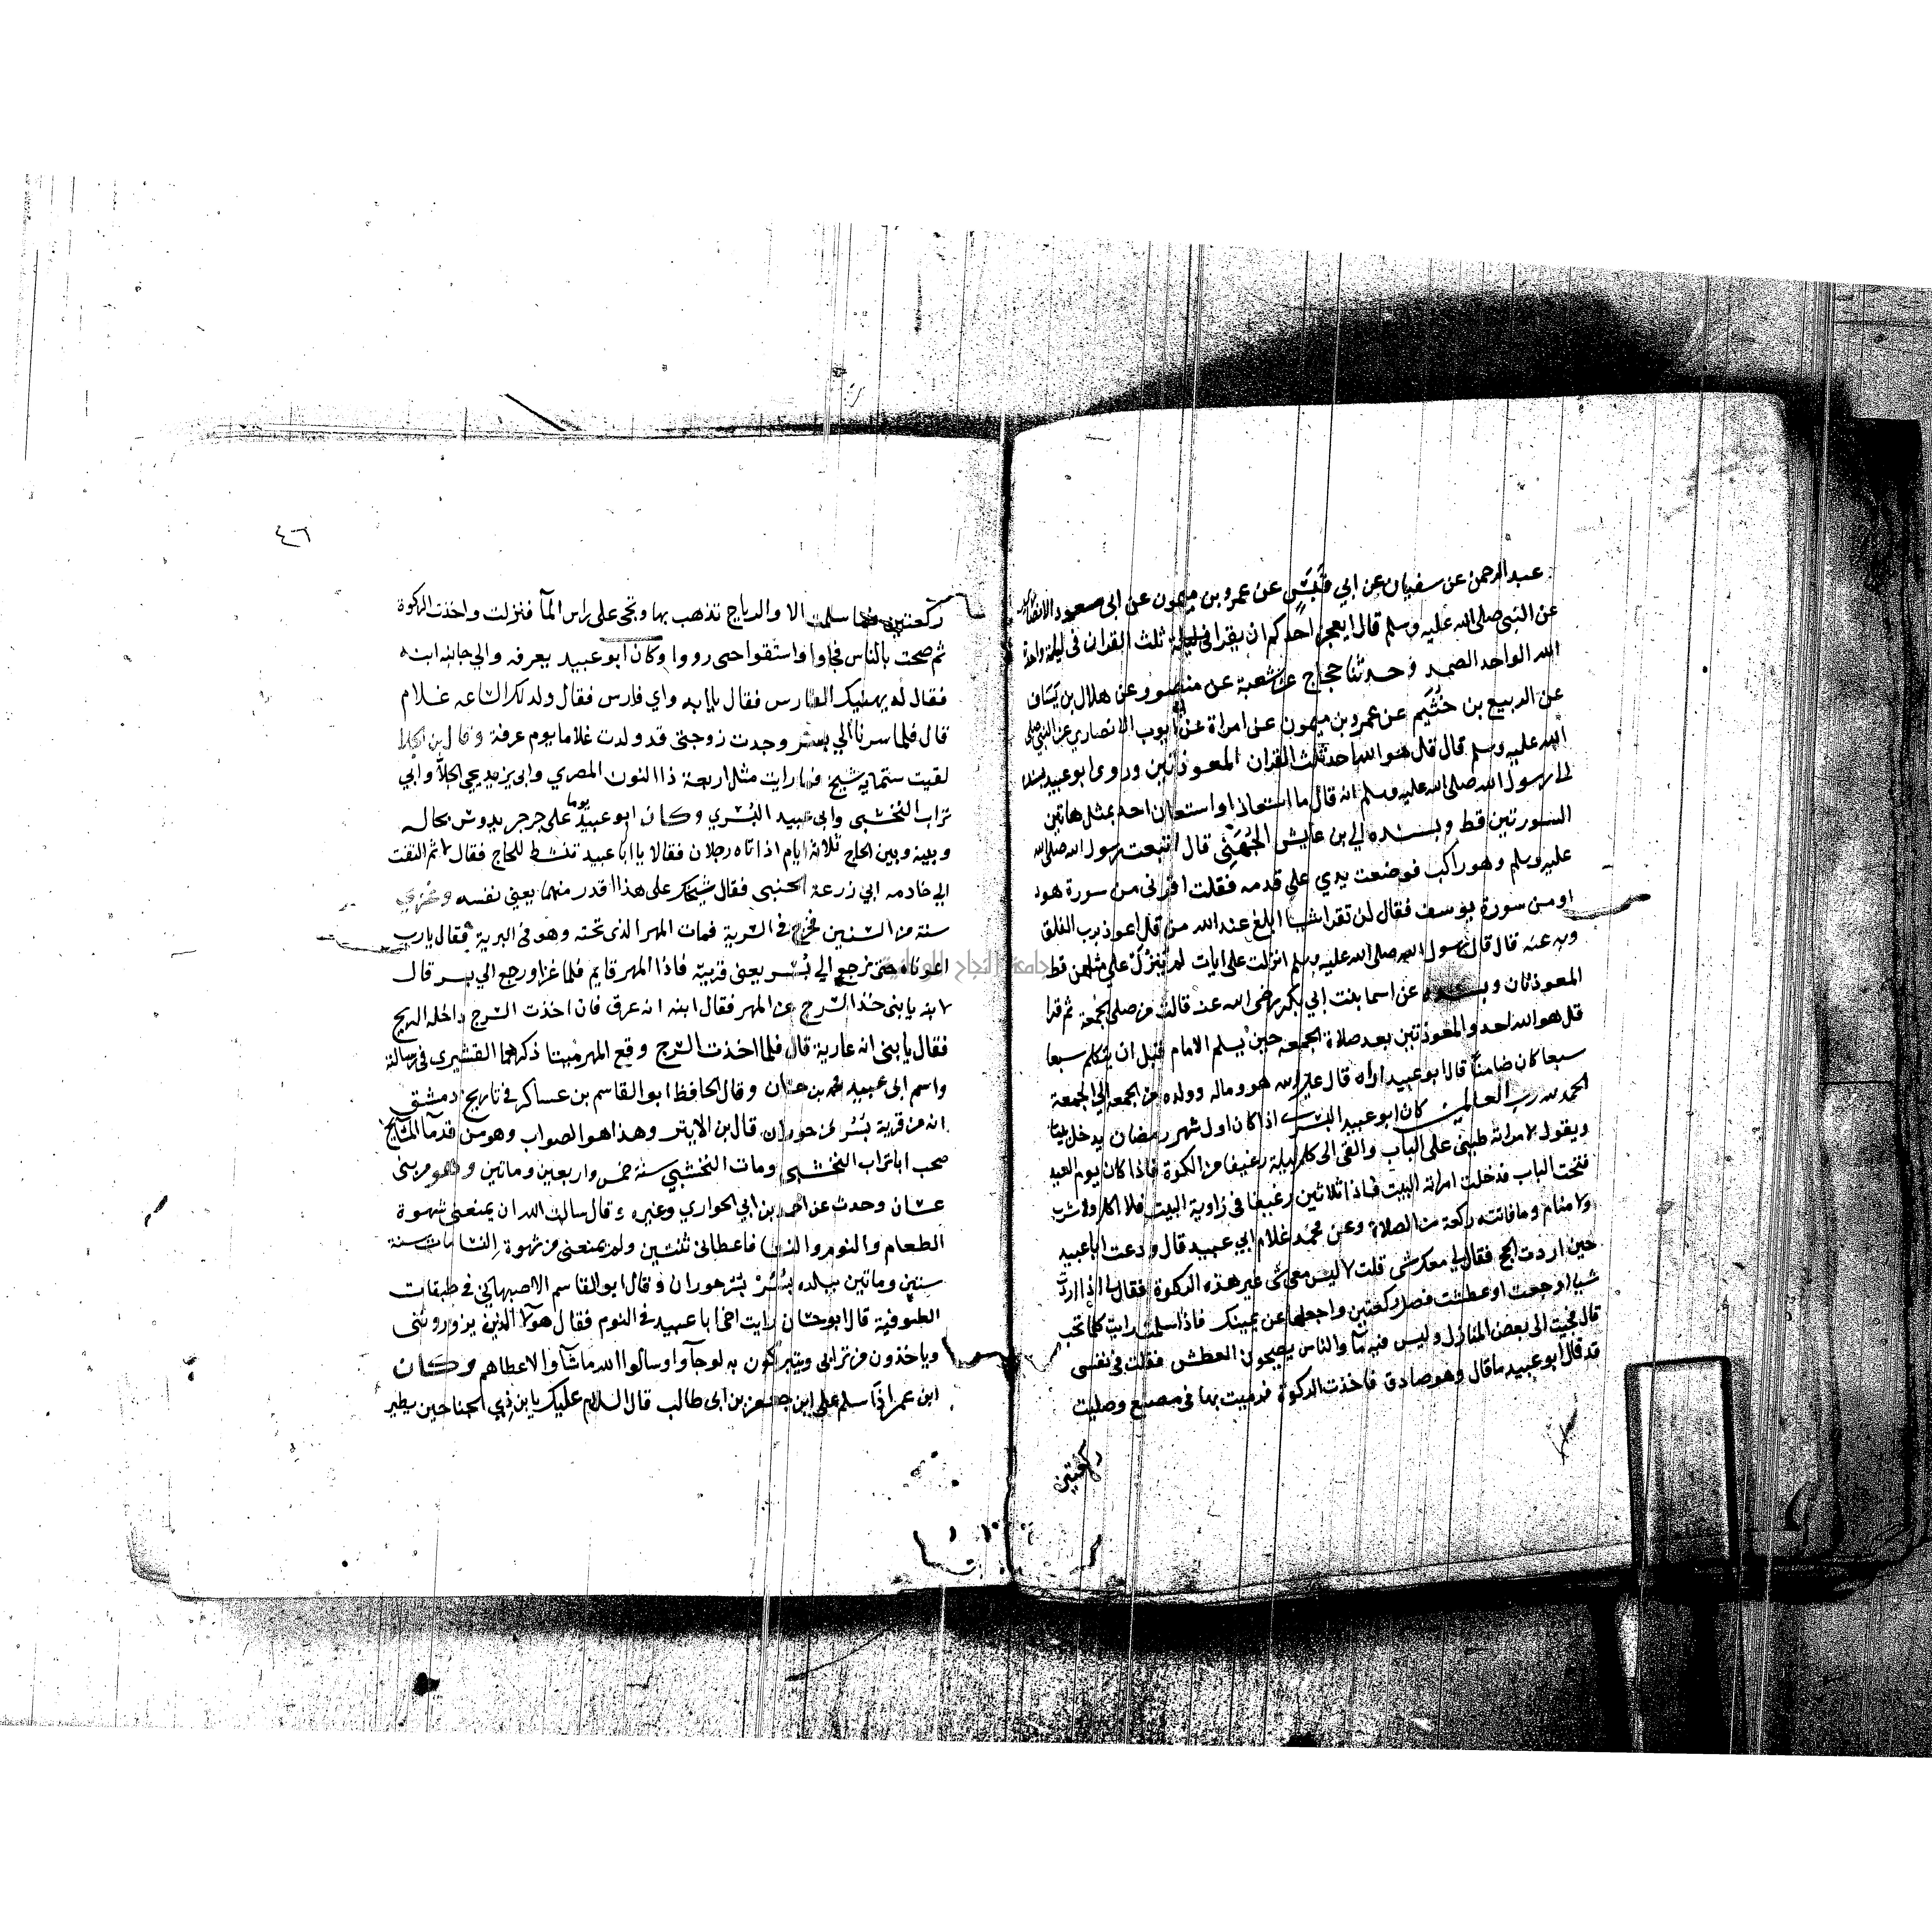 عبد الرحمن عن سفيان عن ابي قيس عن عمرو بن ميمون عن ابي مسعود الانصاري
عن النبي صلى الله عليه وسلم قال ايعجز احدكم ان يقرا في ليلة ثلث القران في ليلة واحدة
الله الواحد الصمد وحدثنا حجاج عن شعبة عن منصور عن هلال بن يساف
عن الربيع بن خثيم عن عمرو بن ميمون عن امراة عن ابي ايوب الانصاري عن النبي صلى
الله عليه وسلم قال قل هو الله احد ثلث القران المعوذتين وروى ابو عبيد بسنده
الى رسول الله صلى الله عليه وسلم انه قال ما استعاذ او استعان احد بمثل هاتين
السورتين قط وبسنده الي بن عايش الجهني قال اتبعت رسول الله صلى الله
عليه وسلم وهو راكب فوضعت يدي على قدمه فقلت اقرني من سورة هود
او من سورة يوسف فقال لن تقرا شيا ابلغ عند الله من قل اعوذ برب الفلق
وبه عنه قال قال رسول الله صلى الله عليه وسلم انزلت علي ايات لم ينزل علي مثلهن قط
المعوذتان وبسنده عن اسما بنت ابي بكر رضي الله عنه قالت من صلى الجمعة ثم قرا
قل هو الله احد والمعوذتين بعد صلاة الجمعه حين يسلم الامام قبل ان يتكلم سبعا
سبعا كان ضامنا قال ابو عبيد اراه قال على الله هو وماله وولده من الجمعه الي الجمعة
الحمد لله رب العالمين كان ابو عبيد البسري اذا كان اول شهر رمضان يدخل بيتا
ويقول لامراته طيني على الباب والقي الى كل ليلة رغيفا من الكوة فاذا كان يوم العيد
فتحت الباب فدخلت امراته البيت فاذا ثلاثين رغيفا في زاوية البيت فلا اكل ولا شرب
ولا منام وما فاتته ركعة من الصلاة وعن محمد غلام ابي عبيد قال ودعت ابا عبيد
حين اردت الحج فقال لي معك شي قلت لا ليس معي شي غير هذه الركوة فقال اذا اردت
شيا او جعت او عطشت فصل ركعتين واجعلها عن يمينك فاذا سلمت رايت كلما تحب
قال فجيت الى بعض المنازل وليس فيه مآ والناس يصيحون العطش فقلت في نفسي
قد قال ابو عبيد ما قال وهو صادق فاخذت الركوة فرميت بها في مصنع وصليت
ركعتين
٤٦
ركعتين فما سلمت الا والرياح تذهب بها وتجي على راس المآ فنزلت واخذت الركوة
ثم صحت بالناس فجاوا واستقوا حتى رووا وكان ابو عبيد بعرفه والي جانبه ابنه
فقال له يهنيك الفارس فقال يا ابه واي فارس فقال ولد لك الساعه غلام
قال فلما سرنا الي بسر وجدت زوجتي قد ولدت غلاما يوم عرفة وقال بن الجلا
لقيت ستماية شيخ فما رايت مثل اربعة ذا النون المصري وابي يحيى الجلآ وابي
تراب النخشبي وابي عبيد البسري وكان ابو عبيد يوما على جرجر يدوس بحاله
وبينه وبين الحاج ثلاثة ايام اذ اتاه رجلان فقالا يا ابا عبيد تنشط للحاج فقال لا ثم التفت
الي خادمه ابي زرعة الجنبي فقال شيخك على هذا اقدر منهما يعني نفسه وغزي
سنة من السنين فخرج في السرية فمات المهر الذي تحته وهو في البرية فقال يارب
اعرناه حتى نرجع الي بسر يعني قريته فاذا المهر قايم فلما غزا ورجع الي بسر قال
لابنه يا بني خذ السرج عن المهر فقال ابنه انه عرق فان اخذت السرج داخله الريح
فقال يا بني انه عارية قال فلما اخذت السرج وقع المهر ميتا ذكرهما القشيري في رسالته
واسم ابي عبيد محمد بن حسان وقال الحافظ ابو القاسم بن عساكر في تاريخ دمشق
انه من قرية بسر من حوران قال بن الاثير وهذا هو الصواب وهو من قدمآ المشايخ
صحب ابا تراب النخشبي ومات النخشبي سنة خمس واربعين وماتين وهو من بني
غسان وحدث عن احمد بن ابي الحواري وغيره وقال سالت الله ان يمنعني شهوة
الطعام والنوم والنسا فاعطاني ثنتين ولم يمنعني من شهوة النسا مات سنة
ستين وماتين ببلده بسر بسر حوران وقال ابو القاسم الاصبهاني في طبقات
الصوفية قال ابو حسان رايت اخي ابا عبيد في النوم فقال هولآ الذين يزوروني
وياخذون من ترابي ويتبركون به لو جآوا وسالوا الله ماشآوا الاعطاهم وكان
ابن عمر اذا سلم على ابن جعفر بن ابي طالب قال السلام عليك يا بن ذي الجناحين يطير
جامعة النجاح الوطنية